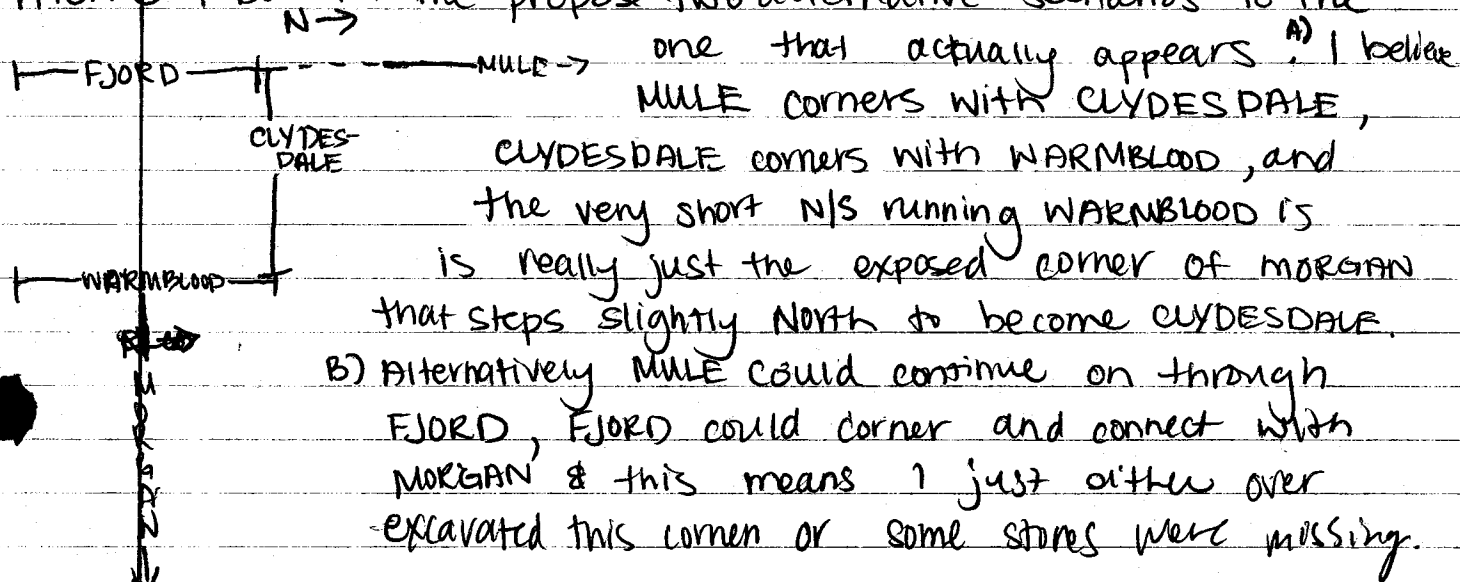 the propose two alternative scenarios to the
N →
one that actually appears. A) I believe
FJORD MULE →
MULE corners with CLYDESDALE,
CLYDES-
DALE
CLYDESDALE corners with WARMBLOOD, and
the very short N/S running WARMBLOOD is
is really just the exposed corner of MORGAN
WARMBLOOD
that steps slightly North to become CLYDESDALE.
B) Alternatively MULE could continue on through
FJORD, FJORD could corner and connect with
MORGAN & this means I just either over
excavated this corner or some stones were missing.
MORGAN